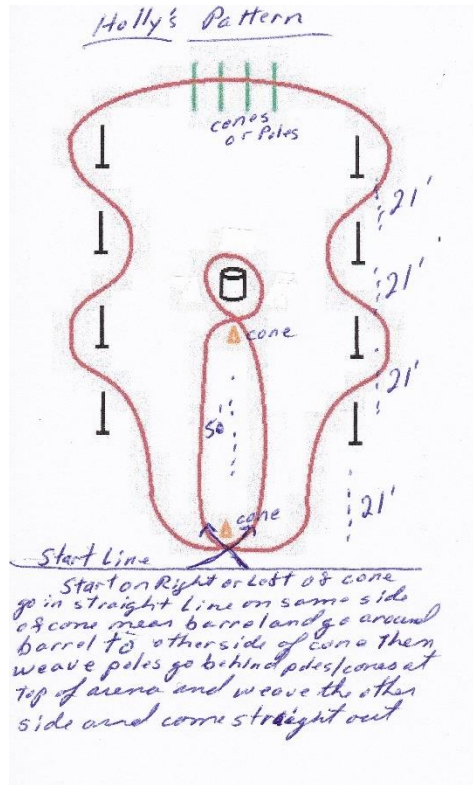 Holly's Pattern
cones
or Poles
21'
21'
cone
21'
50'
cone
21'
Start Line
Start on Right or Left of cone
go in straight Line on same side
of cone mean barrel and go around
barrel to other side of cone then
weave poles go behind poles/cones at
top of arena and weave the other
side and come straight out